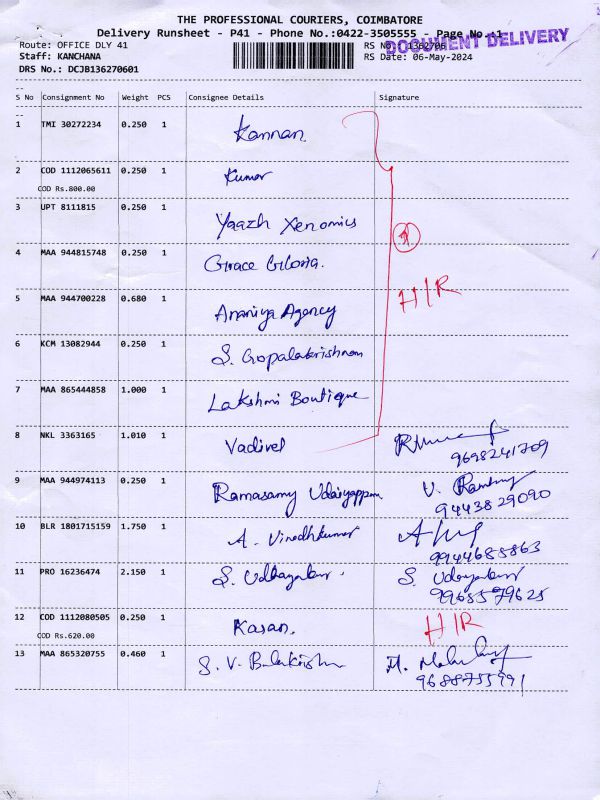 THE PROFESSIONAL COURIERS, COIMBATORE
Delivery Runsheet - P41 - Phone No.:0422-3505555 - Page No.:1
DOCUMENT DELIVERY
Route: OFFICE DLY 41 RS No.: 1362706
Staff: KANCHANA RS Date: 06-May-2024
DRS No.: DCJB136270601
S No Consignment No Weight PCS Consignee Details Signature
1 TMI 30272234 0.250 1 Kannan
2 COD 1112065611 0.250 1 Kumar
COD Rs.800.00
3 UPT 8111815 0.250 1 Yaazh Xenomics
4 MAA 944815748 0.250 1 Grace Gloria.
H/R
5 MAA 944700228 0.680 1 Ananiya Agency
6 KCM 13082944 0.250 1 S. Gopalakrishnan
7 MAA 865444858 1.000 1 Lakshmi Boutique
8 NKL 3363165 1.010 1 Vadivel
9698241709
9 MAA 944974113 0.250 1 Ramasamy Udaiyappan
9443829090
10 BLR 1801715159 1.750 1 A. Vinodhkumar
9944685863
11 PRO 16236474 2.150 1 S. Udhayakumar. S. Udayakumar
9965579625
12 COD 1112080505 0.250 1 Kasan. H/R
COD Rs.620.00
13 MAA 865320755 0.460 1 S. V. Balakrishn
9688755991